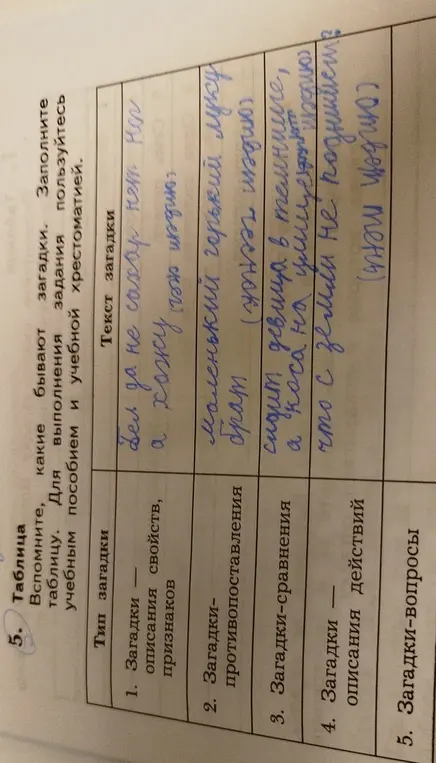 5. Таблица
Вспомните, какие бывают загадки. Заполните
таблицу. Для выполнения задания пользуйтесь
учебным пособием и учебной хрестоматией.
Тип загадки
Текст загадки
1. Загадки —
описания свойств,
признаков
бел да не сахар нет ног
а хожу
2. Загадки-
противопоставления
маленький горький луку
брат
3. Загадки-сравнения
сидит девица в темнице,
а коса на улице
4. Загадки —
описания действий
что с земли не поднимешь?
5. Загадки-вопросы